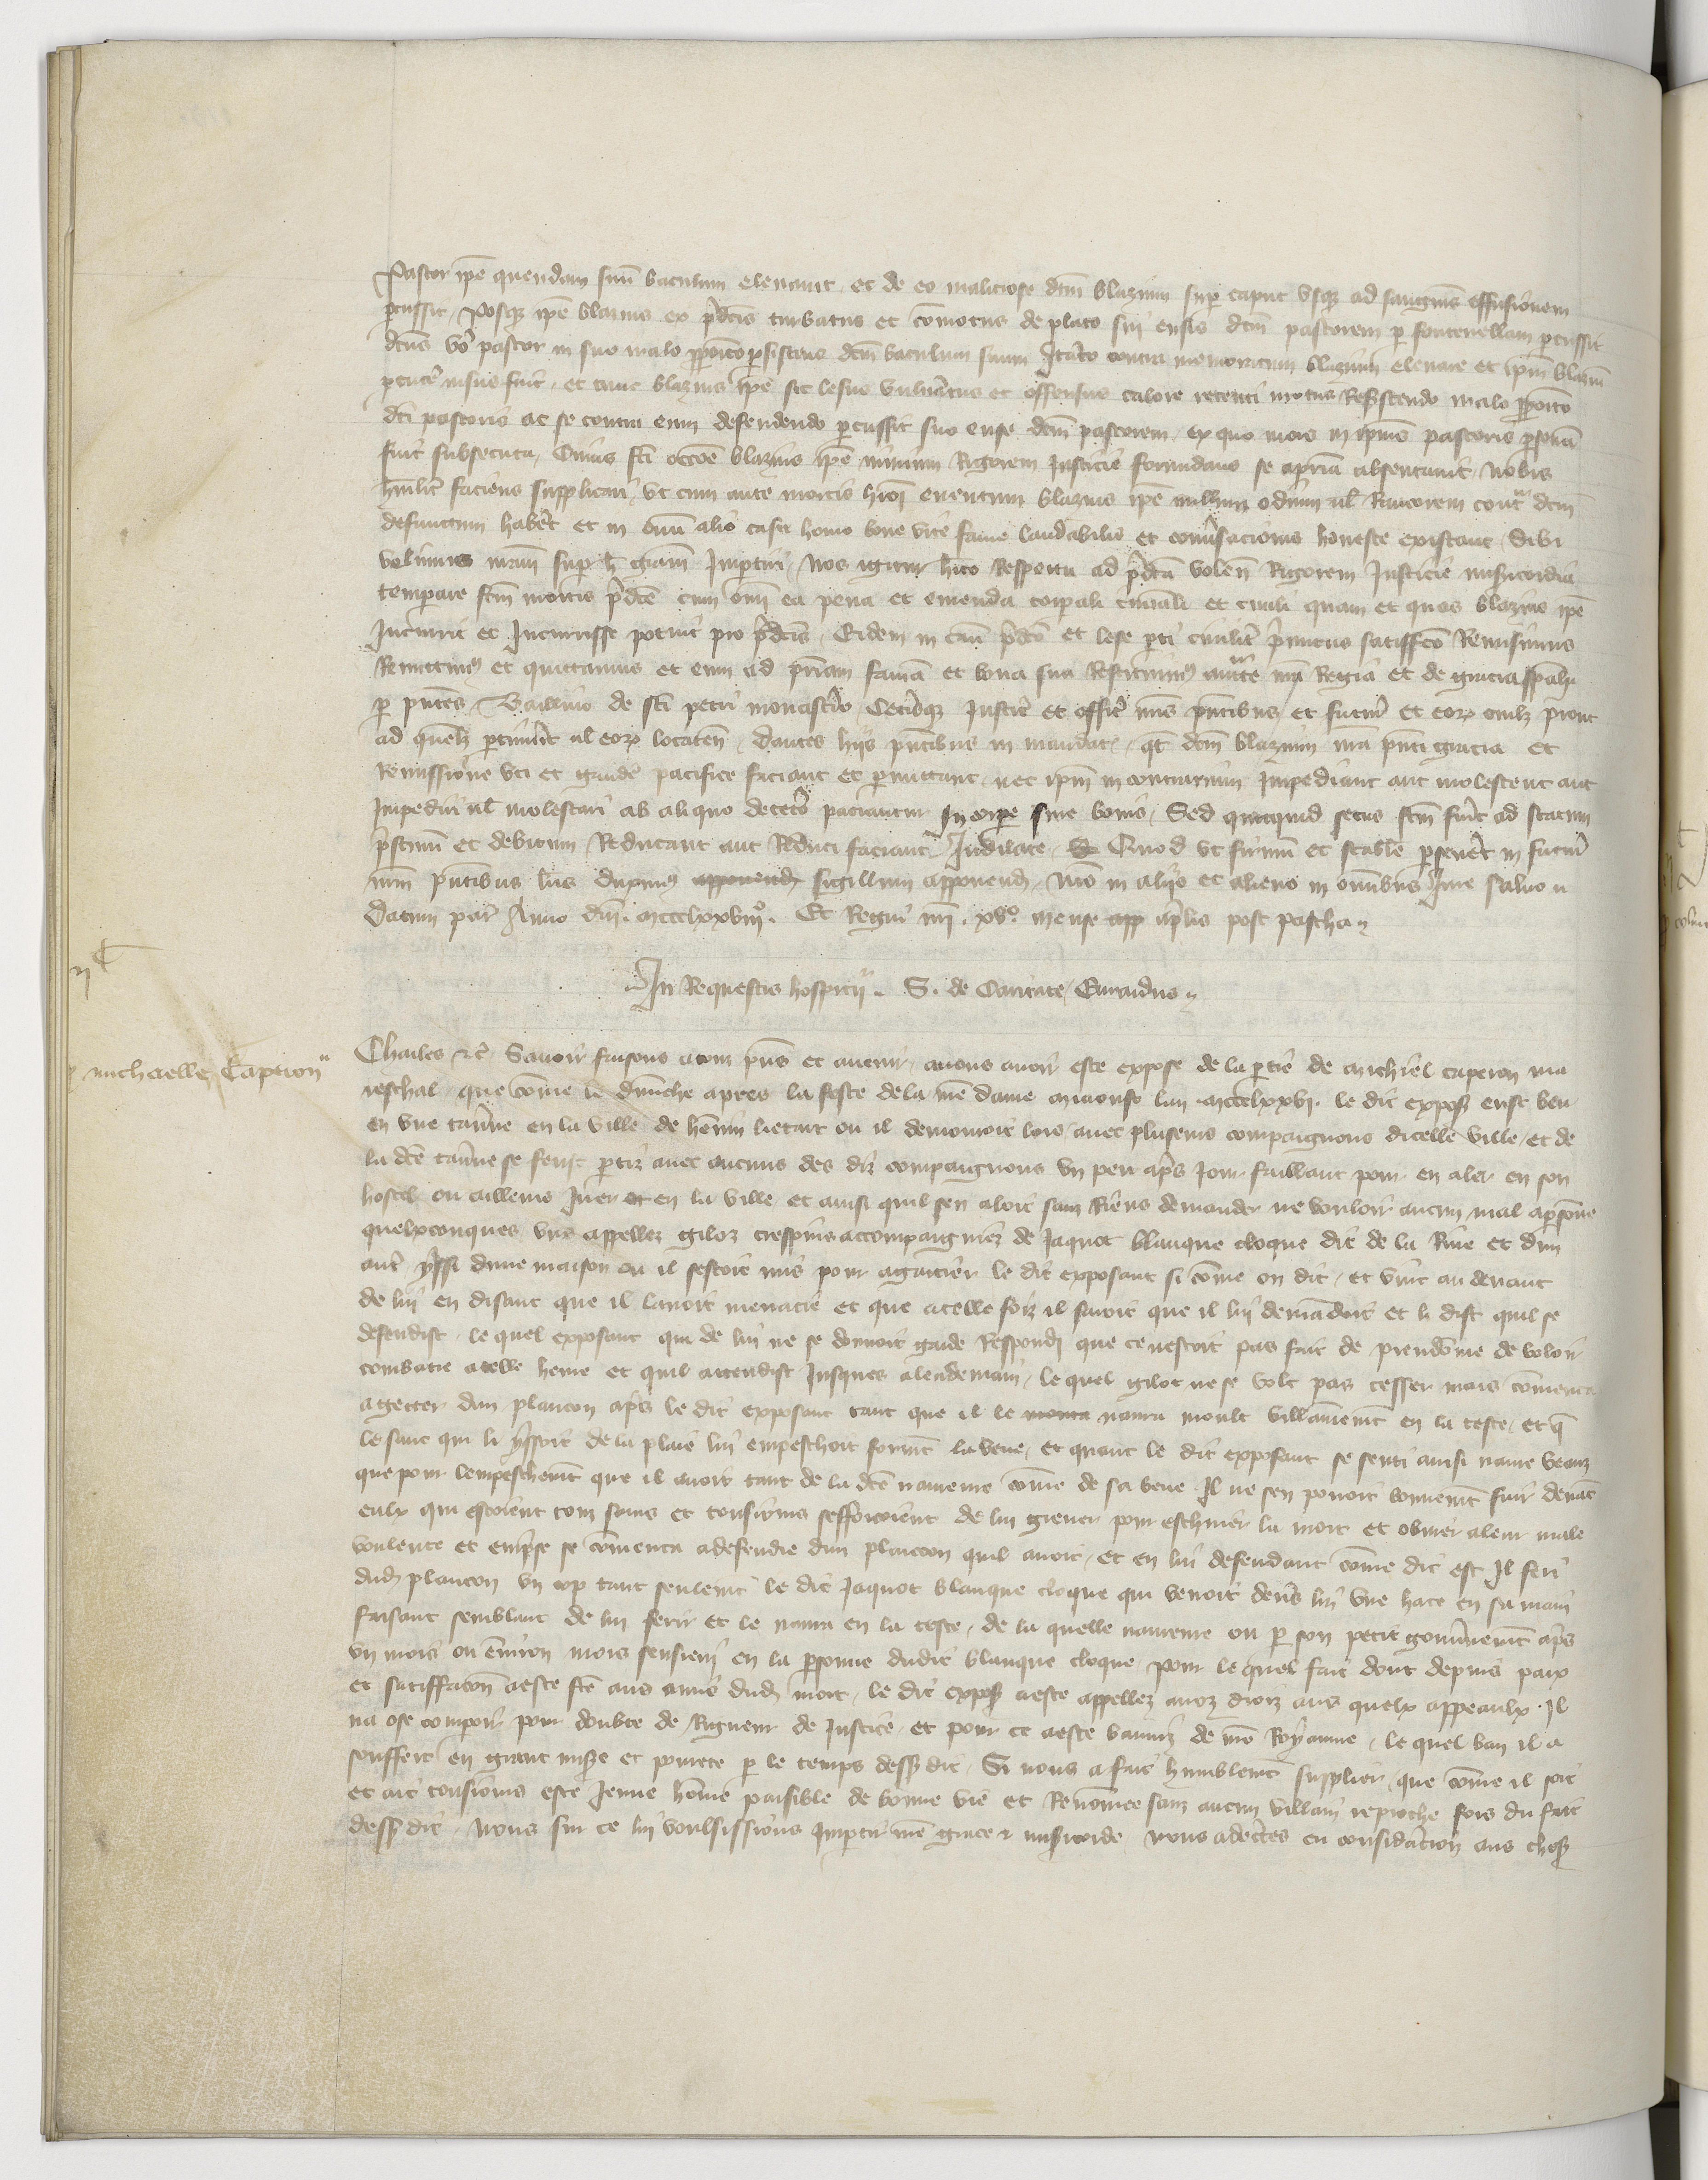 Pastor ipē quendam suū baculum elevavit et de eo maliciose dcm̄ blazium sup caput usqz ad sanguinis effusionem
pcussit, Posqz ipē blazius ex pdcīs turbatus et cōmotus de plato sui ensis dcm̄ pastorem p fontenellam pcussit
dcūs vo pastor in suo malo ppōito psistens dcm̄ baculum suum Itato contra memoratum blazium elevare et ipm̄ blaziū
pcute nisus fuit, et tunc blazius ipē sic lesus vulnatus et offensus calore recenti motus Resistendo malo ppōito
dci pastoris ac se contra eum defendendo percussit suo ense dcm̄ pastorem, ex quo mors in ipius pastoris psonā
fuit subsecuta, Cuius fci occōe blazius ipē nimium Rigorem Justicie formidans se a pria absentavit, Nobis
humilit faciens supplicari, ut cum ante mortis huiōi eventum blazius ipē nullum odium vel Rancorem contra dcm̄
defunctum habet et in omi alio casu homo bone vite fame laudabilis et conv̄sacionis honeste existat, Sibi
velimus nram sup h graciam Impertiri, Nos igitur hito Respectu ad pdcā volen Rigorem Justicie misericordia
temperare fcm̄ mortis pdcē cum omi ea pena et emenda corpali criminali et civili quam et quas blazius ipē
Incurrit et Incurrisse potuit pro pdcis, Eidem in casu pdco et lese pti civilit primitus satisfco Remisimus
Remittimus et quittamus et eum ad priam famā et bona sua Restituimus aucte nra Regia et de gracia spāli
p pntes, Baillivo de sci petri monasterio Ceterisqz Justic et offic nris pntibus et futuris et eorz cuilz prout
ad quemlz ptinuerit vel eorz locaten, dantes hiis pntibus in mandatis, qt dcm̄ blazium nra pnti gracia et
Remissione uti et gaudere pacifice faciant et pmittant, nec ipm̄ in contrarium Impediant aut molestent aut
Impediri vel molestari ab aliquo decetero paciantur In corpe sive bonis, Sed quicquid secus fcm̄ fuit ad statum
pstinū et debitum Reducant aut Reduci faciant Indilate, Et Quod ut firmū et stabile pseveret in futurum
nrm̄ pntibus lris duximus apponendz sigillum apponendz, Nro in aliis et alieno in omnibus Jure salvo
Datum par Anno dm̄ mccclxxviiiº. Et Regni nri xvº. mense app aprilis post pascha

In Requestis hospicii. S. de Caritate, Eurardus

michaelle Caperon

Charles etc, Savoir faisons a touz pns et avenir, a nous avoir este expose de la ptie de michiel caperon ma
reschal, que cōme le dimēche apres la feste de la nre dame miaoust lan mccclxxvi le dit exposz eust beu
en une taverne en la ville de henin lietart ou il demouroit lors, avec plusieurs compaignons dicelle ville, et de
la dcē taverne se feust ptiz avec aucuns des diz compaignons un peu aps Jour faillant pour en aler en son
hostel ou ailleurs Juer et en la ville et ainsi quil sen aloit sanz Riens demander ne vouloir aucun mal a psonne
quelxconques uns appellez giloz crespins accompaigniez de Jaquot blanque cloque dit de la Rive et dun
autre yssi dune maison ou il sestoit mis pour agaitier le dit exposant si cōme on dit, et vint au devant
de lui en disant que il lavoit menacie et que a celle foiz il savroit que il lui demādoit et li dist quil se
defendist, le quel exposant qui de lui ne se donnoit garde Respondi que ce nestoit pas fait de preudōme de voloir
combatre a celle heure et quil attendist Jusques a lendemain, le quel gilot ne se volt pas cesser mais cōmenca
a getter dun plancon aps le dit exposant tant que il le monta navra moult villainemt en la teste, et q
le sanc qui li yssoit de la plaie lui empeschoit formt la veue, et quant le dit exposant se senti ainsi navre veanz
que pour lempeschemt que il avoit tant de la dcē navreure cōme de sa veue Il ne sen povoit bonnemt fuir devāt
eulx qui estoient touz sains et tousiours sefforcoient de lui grever pour eschiver la mort et obvier a leur male
voulente et emprise se cōmenca a defendre dun plancon quil avoit, et en lui defendant cōme dit est Il feri
dudz plancon un cop tant seulemt le dit Jaquot blanque cloque qui venoit devers lui une hace en sa main
faisant semblant de lui ferir et le navra en la teste, de la quelle navreure ou p son petit gouvernemt aps
un mois ou environ mors sensievi en la psonne dudit blanque cloque Pour le quel fait dont depuis paix
et satisfacōn a este fte aus amis dudz mort, le dit exposz a este appellez a noz droiz aus quelx appeaulx Il
na ose comparoir pour doubte de Rigueur de Justice, et pour ce a este banniz de nre Royaume, le quel ban il a
souffert en grant misere et povrete p le temps dessusdit, Si nous a fait humblemt supplier, que cōme il soit
et ait tousiours este Jeune hōme paisible de bonne vie et Renōmee sanz aucun villain reproche fors du fait
dessusdit, Nous sur ce lui voulsissions Impartir nre grace et misericorde Nous adectes en consideracion aus choses